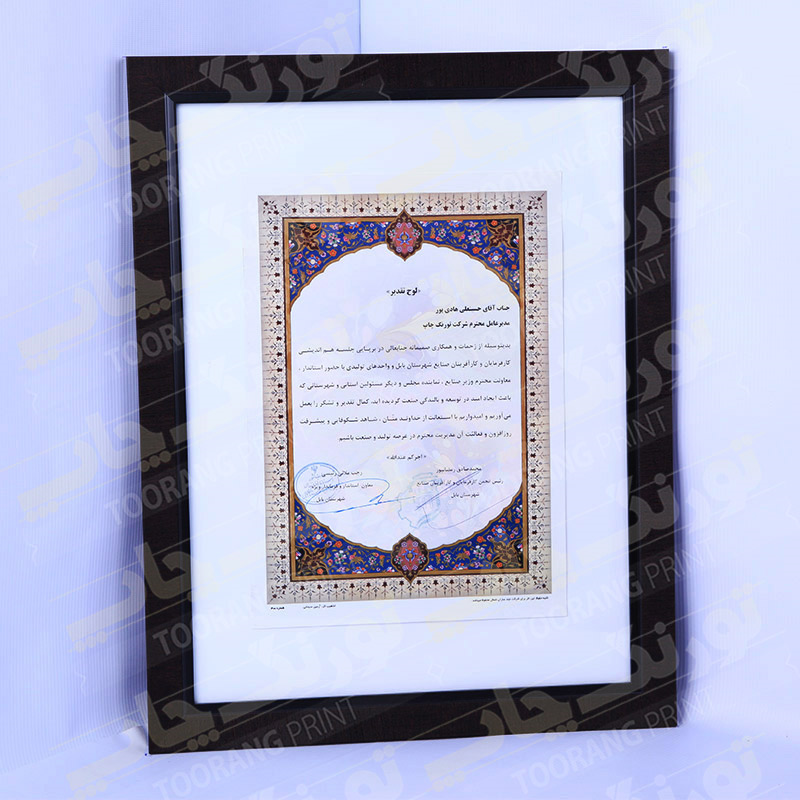 «لوح تقدیر»
جناب آقای حسنعلی هادی پور
مدیرعامل محترم شرکت تورنگ چاپ
بدینوسیله از زحمات و همکاری صمیمانه جنابعالی در برپایی جلسه هم اندیشی
کارفرمایان و کارآفرینان صنایع شهرستان بابل و واحدهای تولیدی با حضور استاندار ،
معاونت محترم وزیر صنایع ، نماینده مجلس و دیگر مسئولین استانی و شهرستانی که
باعث ایجاد امید در توسعه و بالندگی صنعت گردیده اید، کمال تقدیر و تشکر را بعمل
می آوریم و امیدواریم با استعانت از خداوند منان ، شاهد شکوفایی و پیشرفت
روزافزون و فعالیت آن مدیریت محترم در عرصه تولید و صنعت باشیم
«اجرکم عندالله»
محمدصادق رضانیپور
رئیس انجمن کارفرمایان و کارآفرینان صنایع
شهرستان بابل
رجب علی
معاون استاندار و فرماندار ویژه
شهرستان بابل
تورنگ چاپ
TOORANG PRINT
تورنگ چاپ
TOORANG PRINT
تورنگ چاپ
TOORANG PRINT
تورنگ چاپ
TOORANG PRINT